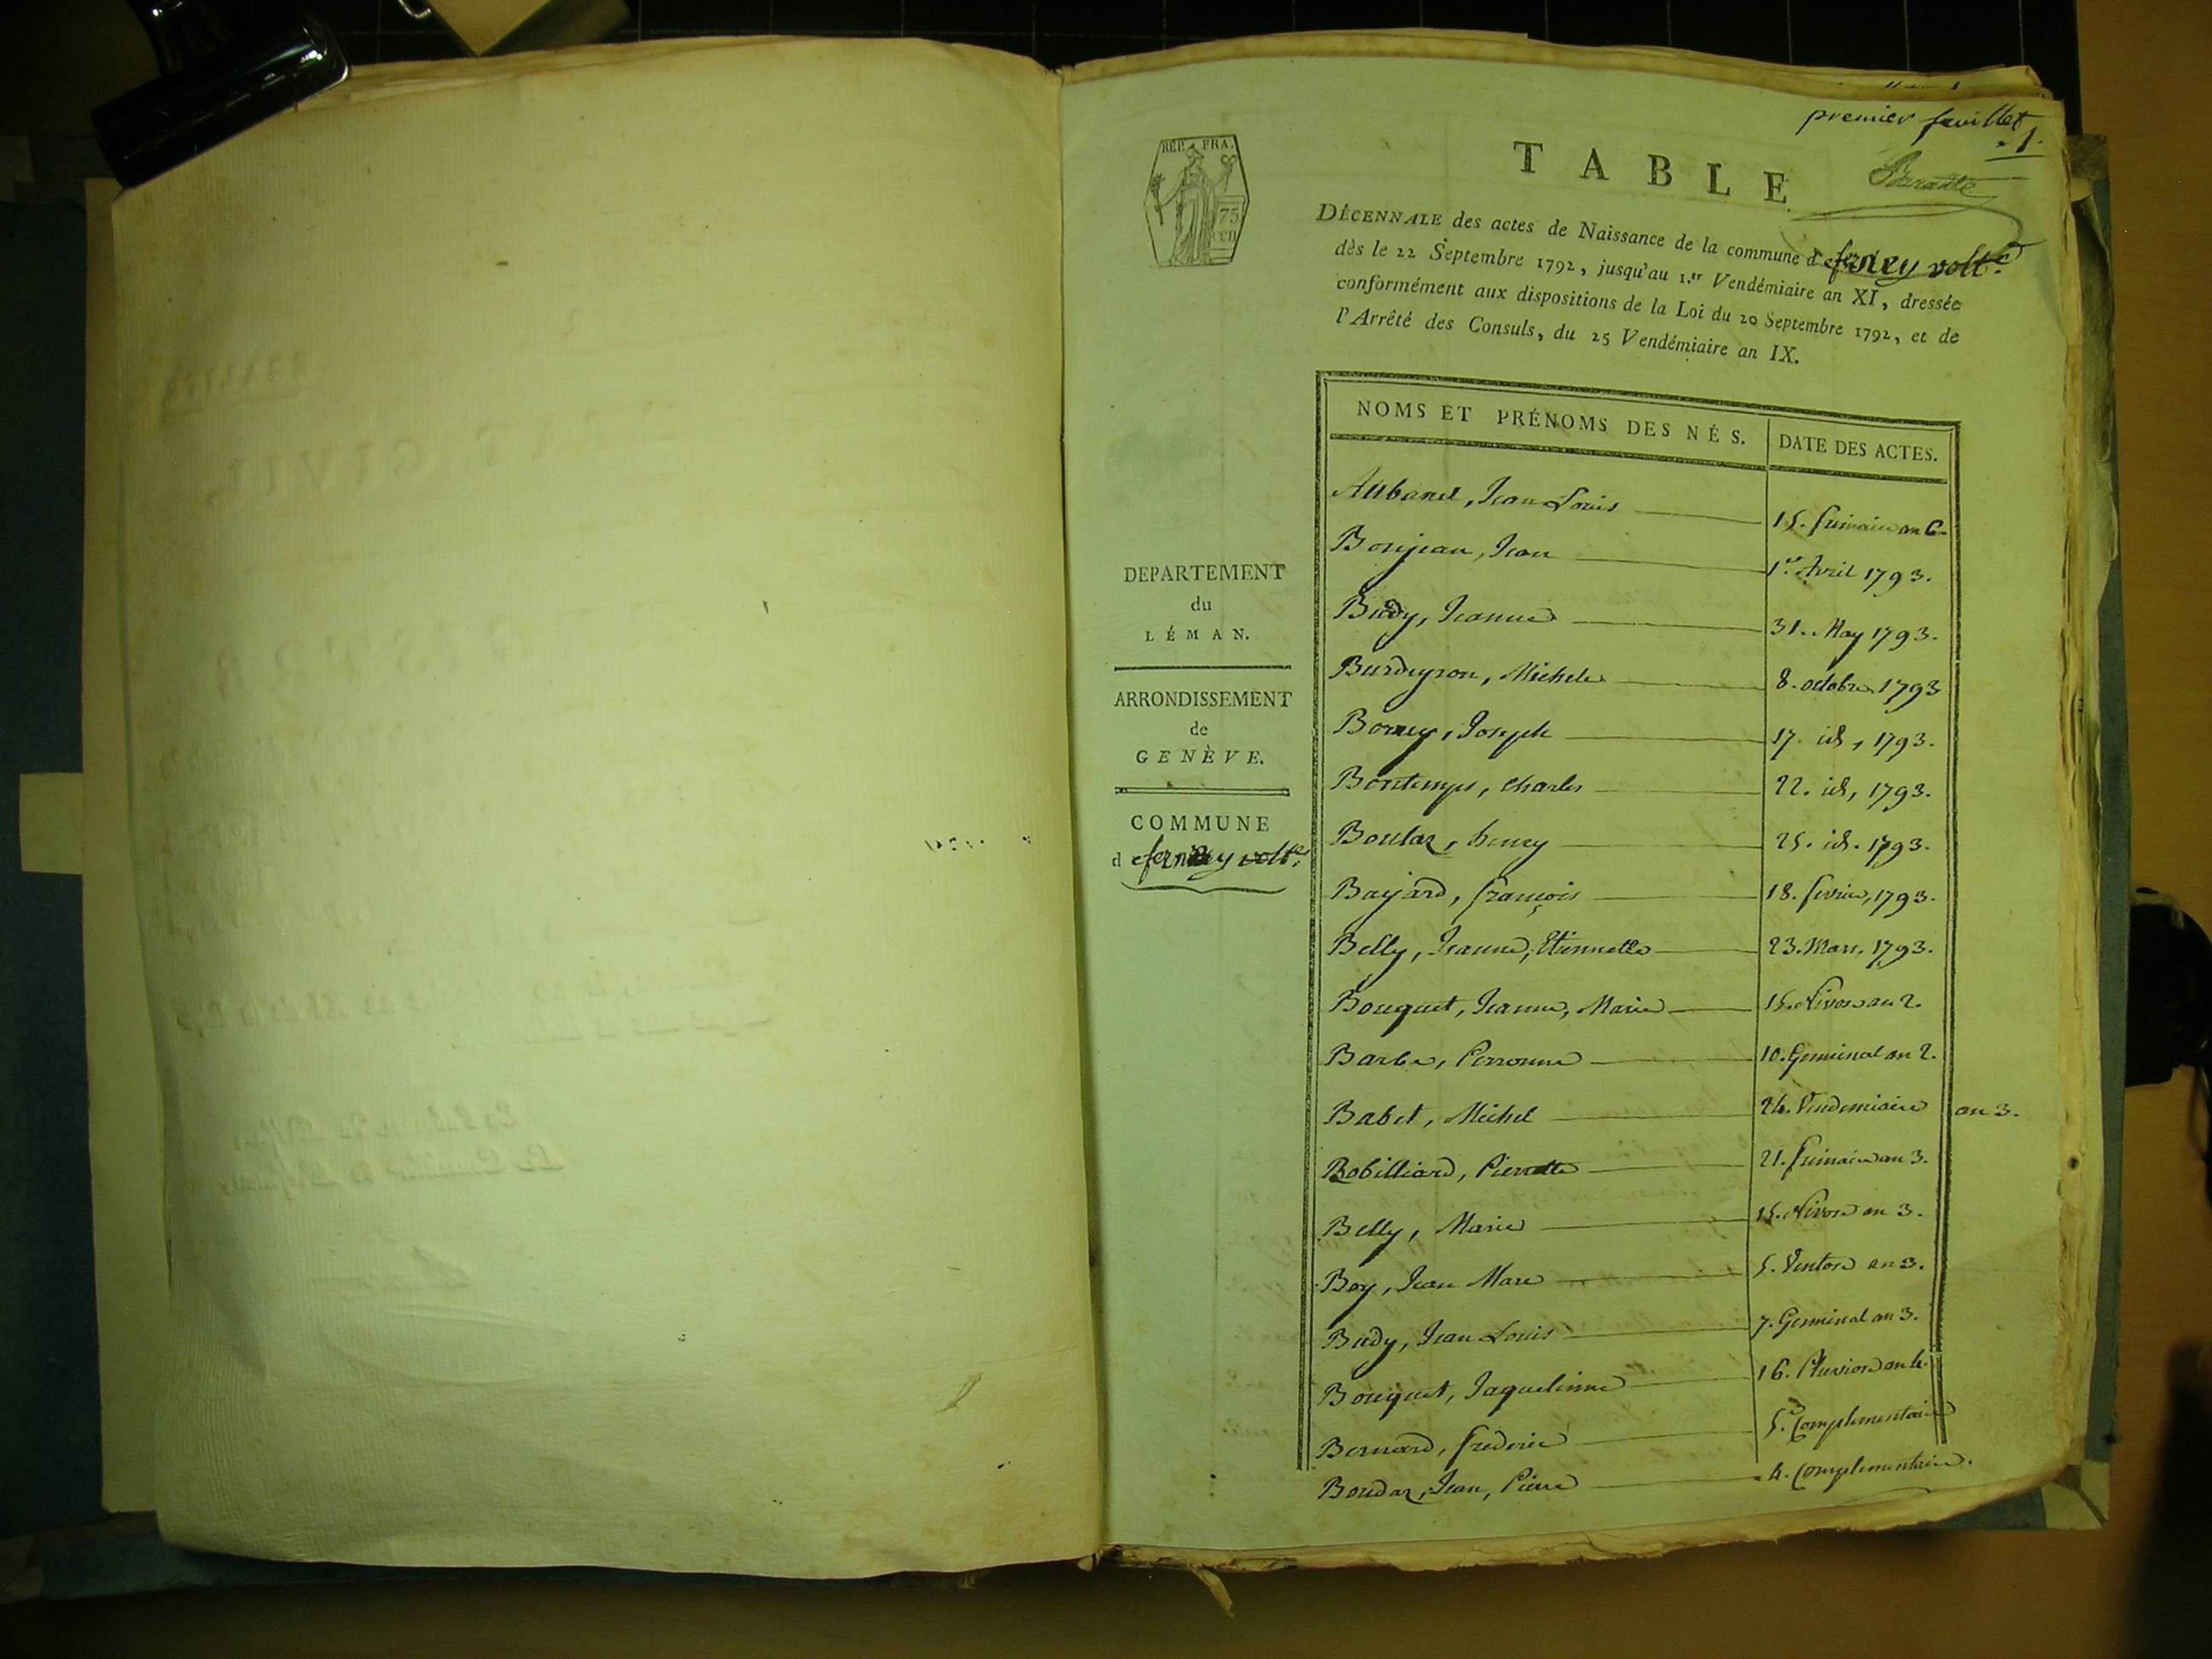 premier feuillet
1.
REP. FRA.
75
cen
TABLE
DÉCENNALE des actes de Naissance de la commune de ferney volt.e
dès le 22 Septembre 1792, jusqu'au 1.er Vendémiaire an XI, dressée
conformément aux dispositions de la Loi du 20 Septembre 1792, et de
l'Arrêté des Consuls, du 25 Vendémiaire an IX.
DEPARTEMENT
du
LÉMAN.
ARRONDISSEMENT
de
GENÈVE.
COMMUNE
de ferney volt.e
NOMS ET PRÉNOMS DES NÉS. DATE DES ACTES.
Aubanel, Jean Louis 15. frimaire an 6.
Bonjean, Jean 1er. Avril 1793.
Budy, Jeanne 31. May 1793.
Burdeyron, Michele 8. octobre, 1793
Borney, Joseph 17. id, 1793.
Bontemps, Charles 22. id, 1793.
Boulaz, henry 25. id. 1793.
Bajard, françois 18. fevrier, 1793.
Belly, Jeanne, Etiennette 23. Mars, 1793.
Bouquet, Jeanne, Marie 15. Nivose an 2.
Barbe, Perronne 10. Germinal an 2.
Babet, Michel 24. Vendemiaire an 3.
Bobilliard, Pierrette 21. frimaire an 3.
Belly, Marie 15. Nivose an 3.
Boy, Jean Marc 5. Ventose an 3.
Budy, Jean Louis 7. Germinal an 3.
Bouquet, Jaquelinne 16. Pluviose an 4.
Bernard, frederic 5.e Complementaire
Boudaz, Jean, Pierre 4. Complementaire.